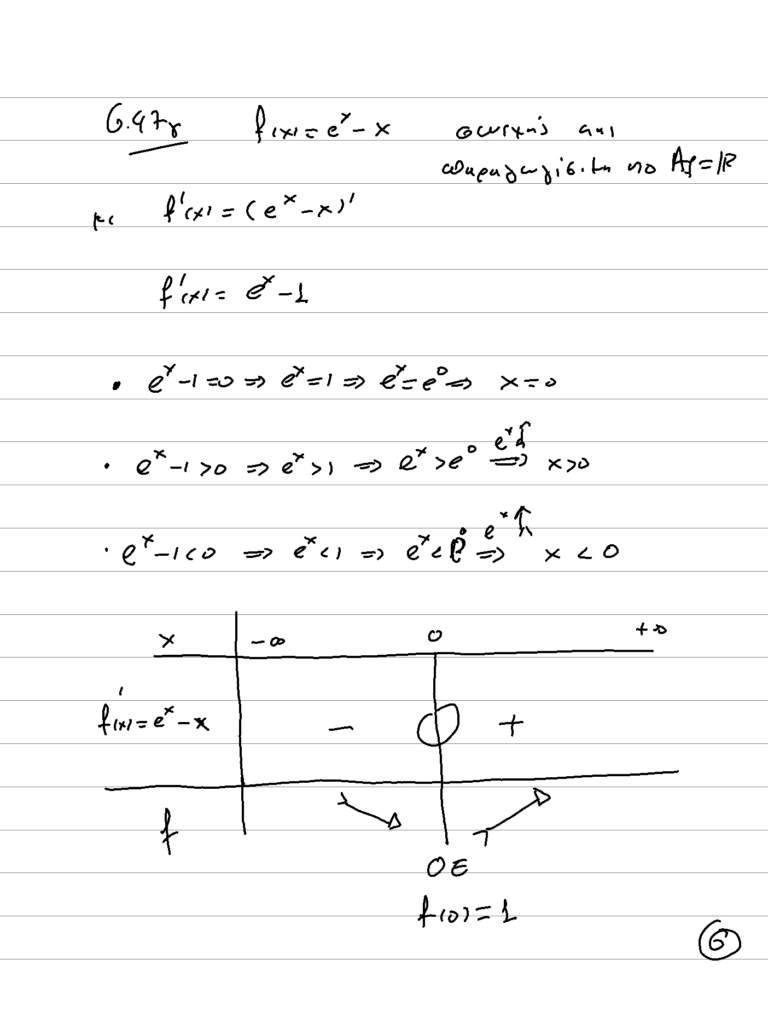 6.47γ f(x) = e^x - x συνεχής και
παραγωγίσιμη στο A_f = ℝ
με f'(x) = (e^x - x)'
f'(x) = e^x - 1
• e^x - 1 = 0 ⇒ e^x = 1 ⇒ e^x = e^0 ⇒ x = 0
• e^x - 1 > 0 ⇒ e^x > 1 ⇒ e^x > e^0 e^x↑ ⇒ x > 0
• e^x - 1 < 0 ⇒ e^x < 1 ⇒ e^x < e^0 e^x↑ ⇒ x < 0
x -∞ 0 +∞
f'(x) = e^x - x - 0 +
f ↘ ↗
ΟΕ
f(0) = 1
6